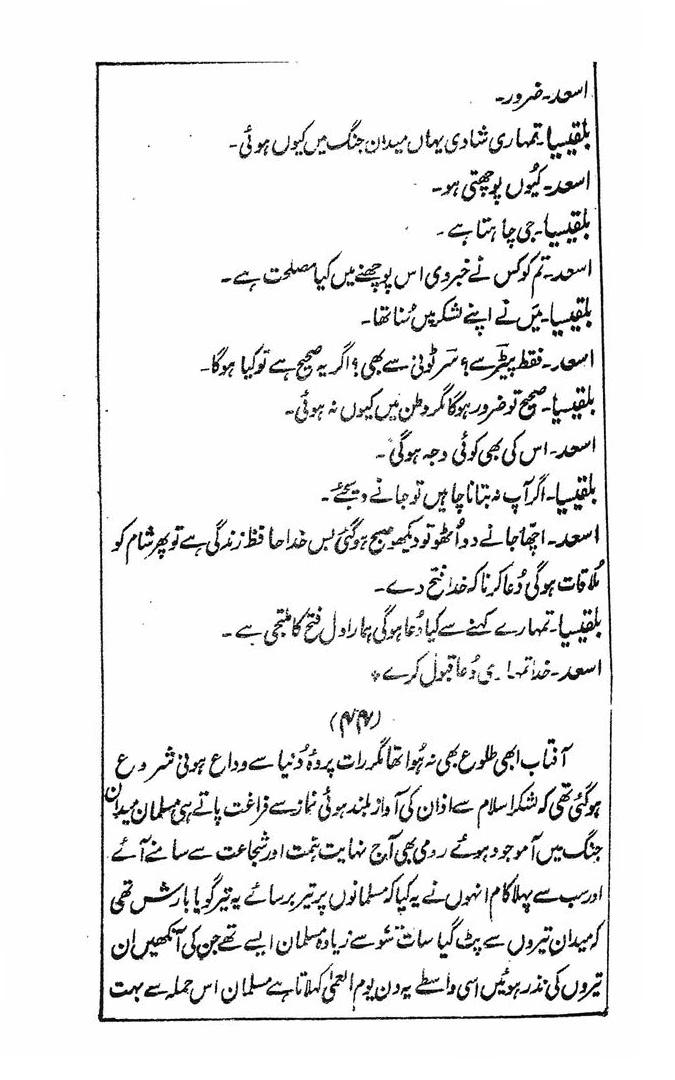 اسعد۔ ضرور۔
بلقیسیا۔ تمہاری شادی یہاں میدان جنگ میں کیوں ہوئی۔
اسعد۔ کیوں پوچھتی ہو۔
بلقیسیا۔ جی چاہتا ہے۔
اسعد۔ تم کو کس نے خبر دی اس پوچھنے میں کیا مصلحت ہے۔
بلقیسیا۔ میں نے اپنے لشکر میں سُنا تھا۔
اسعد۔ فقط پیٹر سے؟ سرٹونی سے بھی؟ اگر یہ صحیح ہے تو کیا ہوگا۔
بلقیسیا۔ صحیح تو ضرور ہوگا مگر وطن میں کیوں نہ ہوئی۔
اسعد۔ اس کی بھی کوئی وجہ ہوگی۔
بلقیسیا۔ اگر آپ نہ بتانا چاہیں تو جانے دیجئے۔
اسعد۔ اچھا جانے دو اُٹھو تو دیکھو صبح ہو گئی بس خدا حافظ زندگی ہے تو پھر شام کو
مُلاقات ہوگی دُعا کرنا کہ خدا فتح دے۔
بلقیسیا۔ تمہارے کہنے سے کیا دُعا ہوگی ہمارا دل فتح کا ملتجی ہے۔
اسعد۔ خدا تمہاری دُعا قبول کرے ٭
(۴۴)
آفتاب ابھی طلوع بھی نہ ہُوا تھا مگر رات پردۂ دُنیا سے وداع ہونی شروع
ہو گئی تھی کہ لشکر اسلام سے اذان کی آواز بلند ہوئی نماز سے فراغت پاتے ہی مسلمان میدان
جنگ میں آموجود ہوئے رومی بھی آج نہایت ہمت اور شجاعت سے سامنے آئے
اور سب سے پہلا کام انہوں نے یہ کیا کہ مسلمانوں پر تیر برسائے یہ تیر گویا بارش تھی
کہ میدان تیروں سے پٹ گیا سات سو سے زیادہ مسلمان ایسے تھے جن کی آنکھیں ان
تیروں کی نذر ہوئیں اسی واسطے یہ دن یوم العمیٰ کہلاتا ہے مسلمان اس حملہ سے بہت